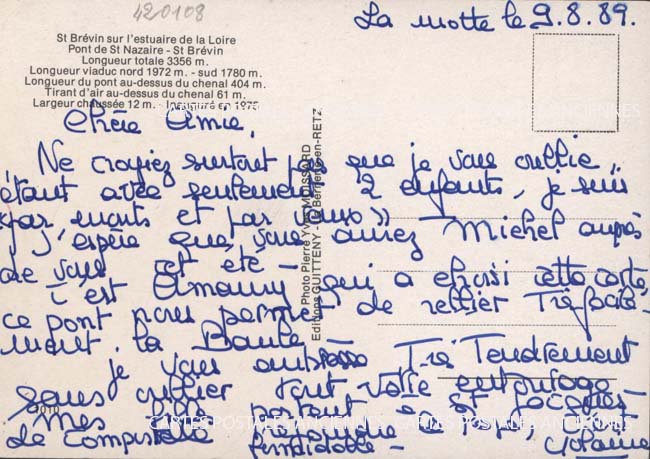 420108
La motte le 9.8.89.
St Brévin sur l'estuaire de la Loire
Pont de St Nazaire - St Brévin
Longueur totale 3356 m.
Longueur viaduc nord 1972 m. - sud 1780 m.
Longueur du pont au-dessus du chenal 404 m.
Tirant d'air au-dessus du chenal 61 m.
Largeur chaussée 12 m. - Inauguré en 1975
Chère Amie,
Ne croyiez surtout pas que je vous oublie
étant avec seulement 2 enfants, je suis
"par monts et par vaux"
J'espère que vous aurez Michel auprès
de vous cet été -
C'est Amaury qui a choisi cette carte,
ce pont nous permet de rellier très
la Baule
je vous embrasse Très Tendrement
sans oublier tout votre entourage
Mes à St Jacques
de Compostelle
Photo Pierre Yves MOISSARD
Editions GUITTENY - La Bernerie-en-RETZ
1010
CARTES POSTALES ANCIENNES